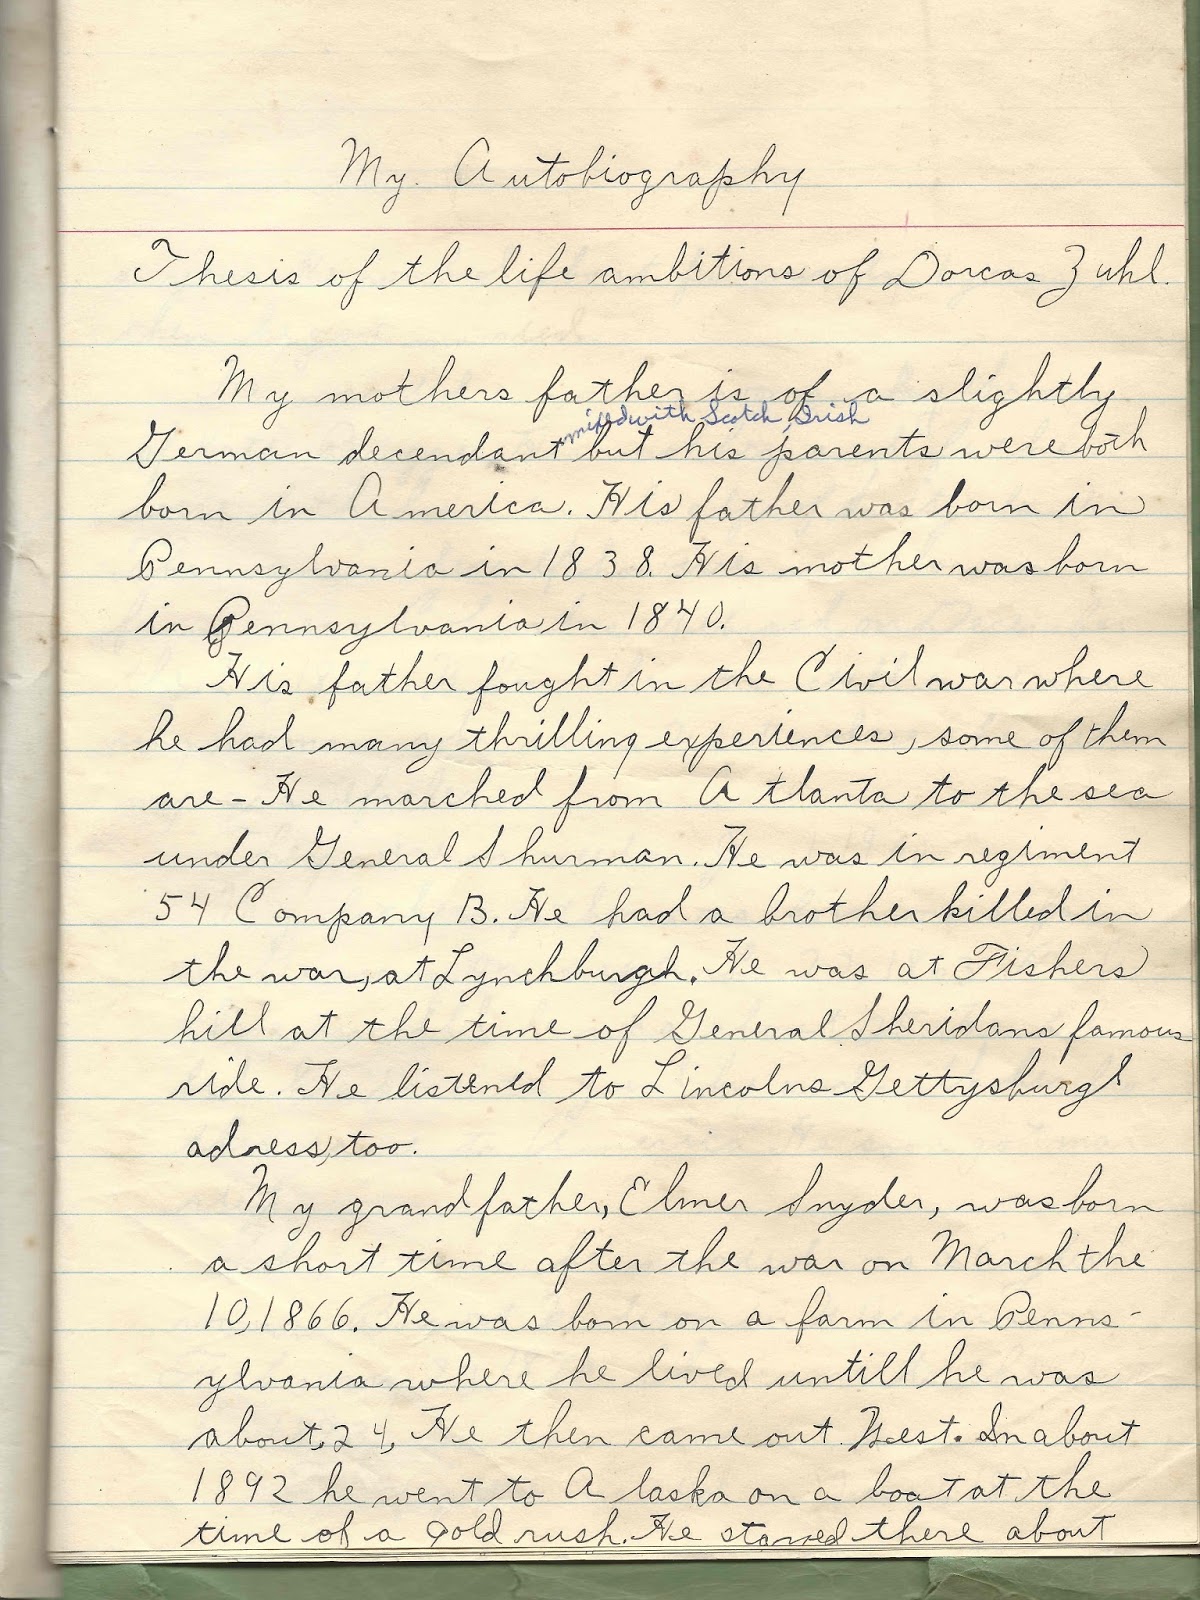 My. Autobiography
Thesis of the life ambitions of Dorcas Zuhl.
My mothers father is of a slightly
mixed with Scotch Irish
German decendant but his parents were both
born in America. His father was born in
Pennsylvania in 1838. His mother was born
in Pennsylvania in 1840.
His father fought in the Civil war where
he had many thrilling experiences, some of them
are - He marched from Atlanta to the sea
under General Shurman. He was in regiment
54 Company B. He had a brother killed in
the war, at Lynchburgh. He was at Fishers
hill at the time of General Sheridans famous
ride. He listened to Lincolns Gettysburgh
adress, too.
My grandfather, Elmer Snyder, was born
a short time after the war on March the
10, 1866. He was born on a farm in Penns-
ylvania where he lived untill he was
about 24, He then came out West. In about
1892 he went to Alaska on a boat at the
time of a gold rush. He stayed there about